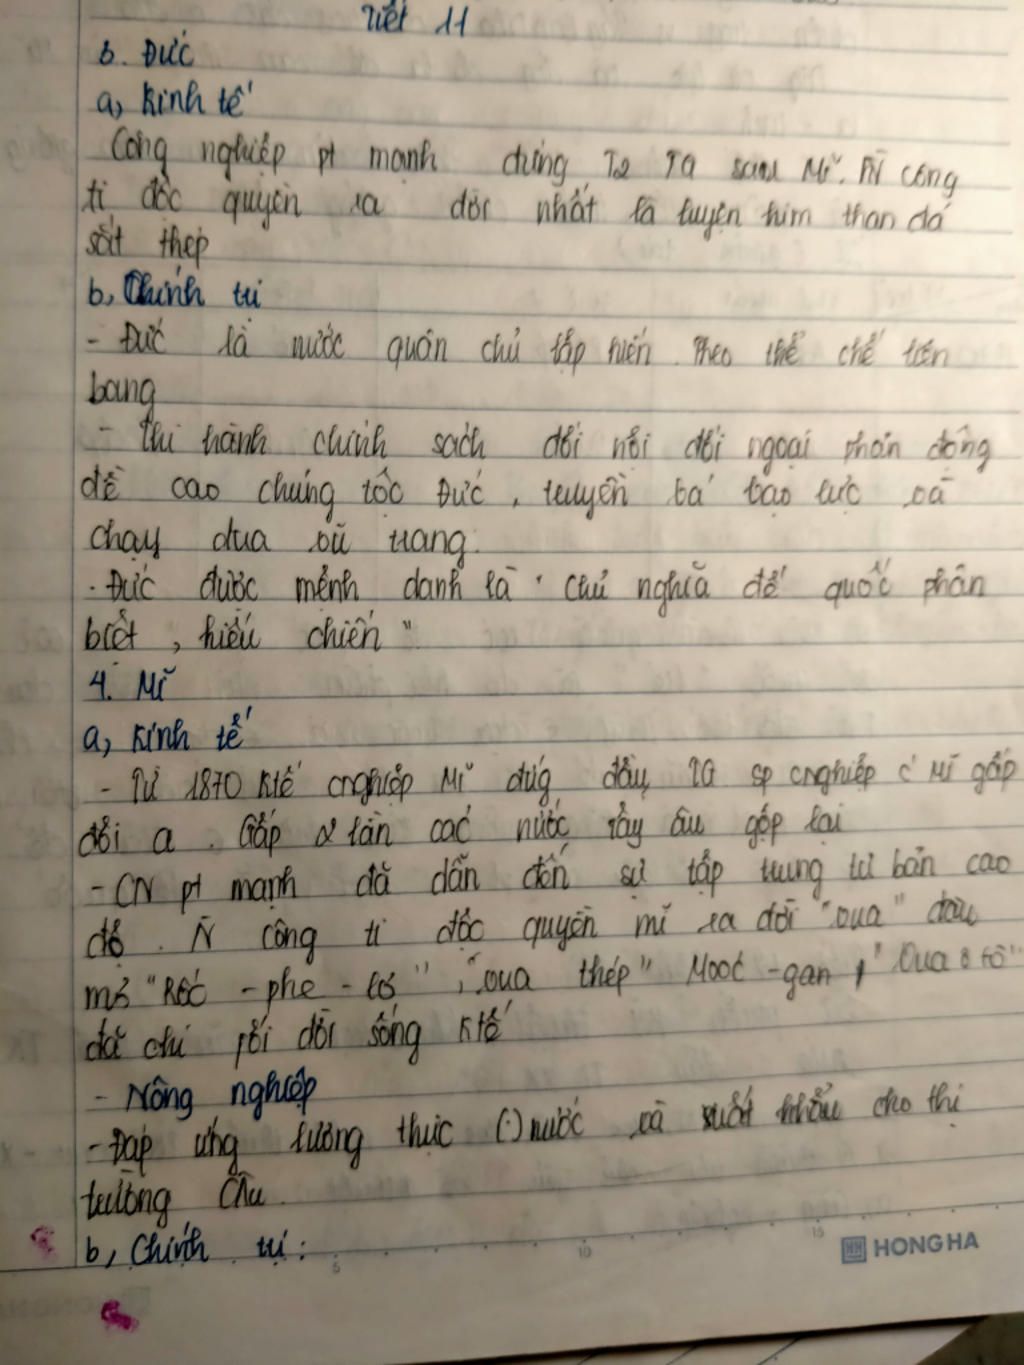 Tiết 11
3. Đức
a, Kinh tế
Công nghiệp pt mạnh đứng T2 TG sau Mĩ. Ñ công
ti độc quyền ra đời nhất là luyện kim than đá
sắt thép
b, Chính trị
- Đức là nước quân chủ lập hiến. Theo thể chế liên
bang
- Thi hành chính sách đối nội đối ngoại phản động
đề cao chủng tộc Đức, truyền bá bạo lực và
chạy đua vũ trang.
- Đức được mệnh danh là "chủ nghĩa đế quốc phân
biệt, hiếu chiến"
4. Mĩ
a, Kinh tế
- Từ 1870 Ktế cnghiệp Mĩ đứg đầu TG sp cnghiệp c' Mĩ gấp
đôi a. Gấp 2 lần các nước Tây âu gộp lại
- CN pt mạnh đã dẫn đến sự tập trung tư bản cao
độ. Ñ công ti độc quyền mĩ ra đời "vua" dầu
mỏ "Rốc - phe - lơ", "vua thép" Mooc -gan, "Vua ô tô"
đã chi phối đời sống Ktế
- Nông nghiệp
- Đáp ứng lương thực (.) nước và xuất khẩu cho thị
trường Châu
b, Chính trị:
5 10 15
HONG HA